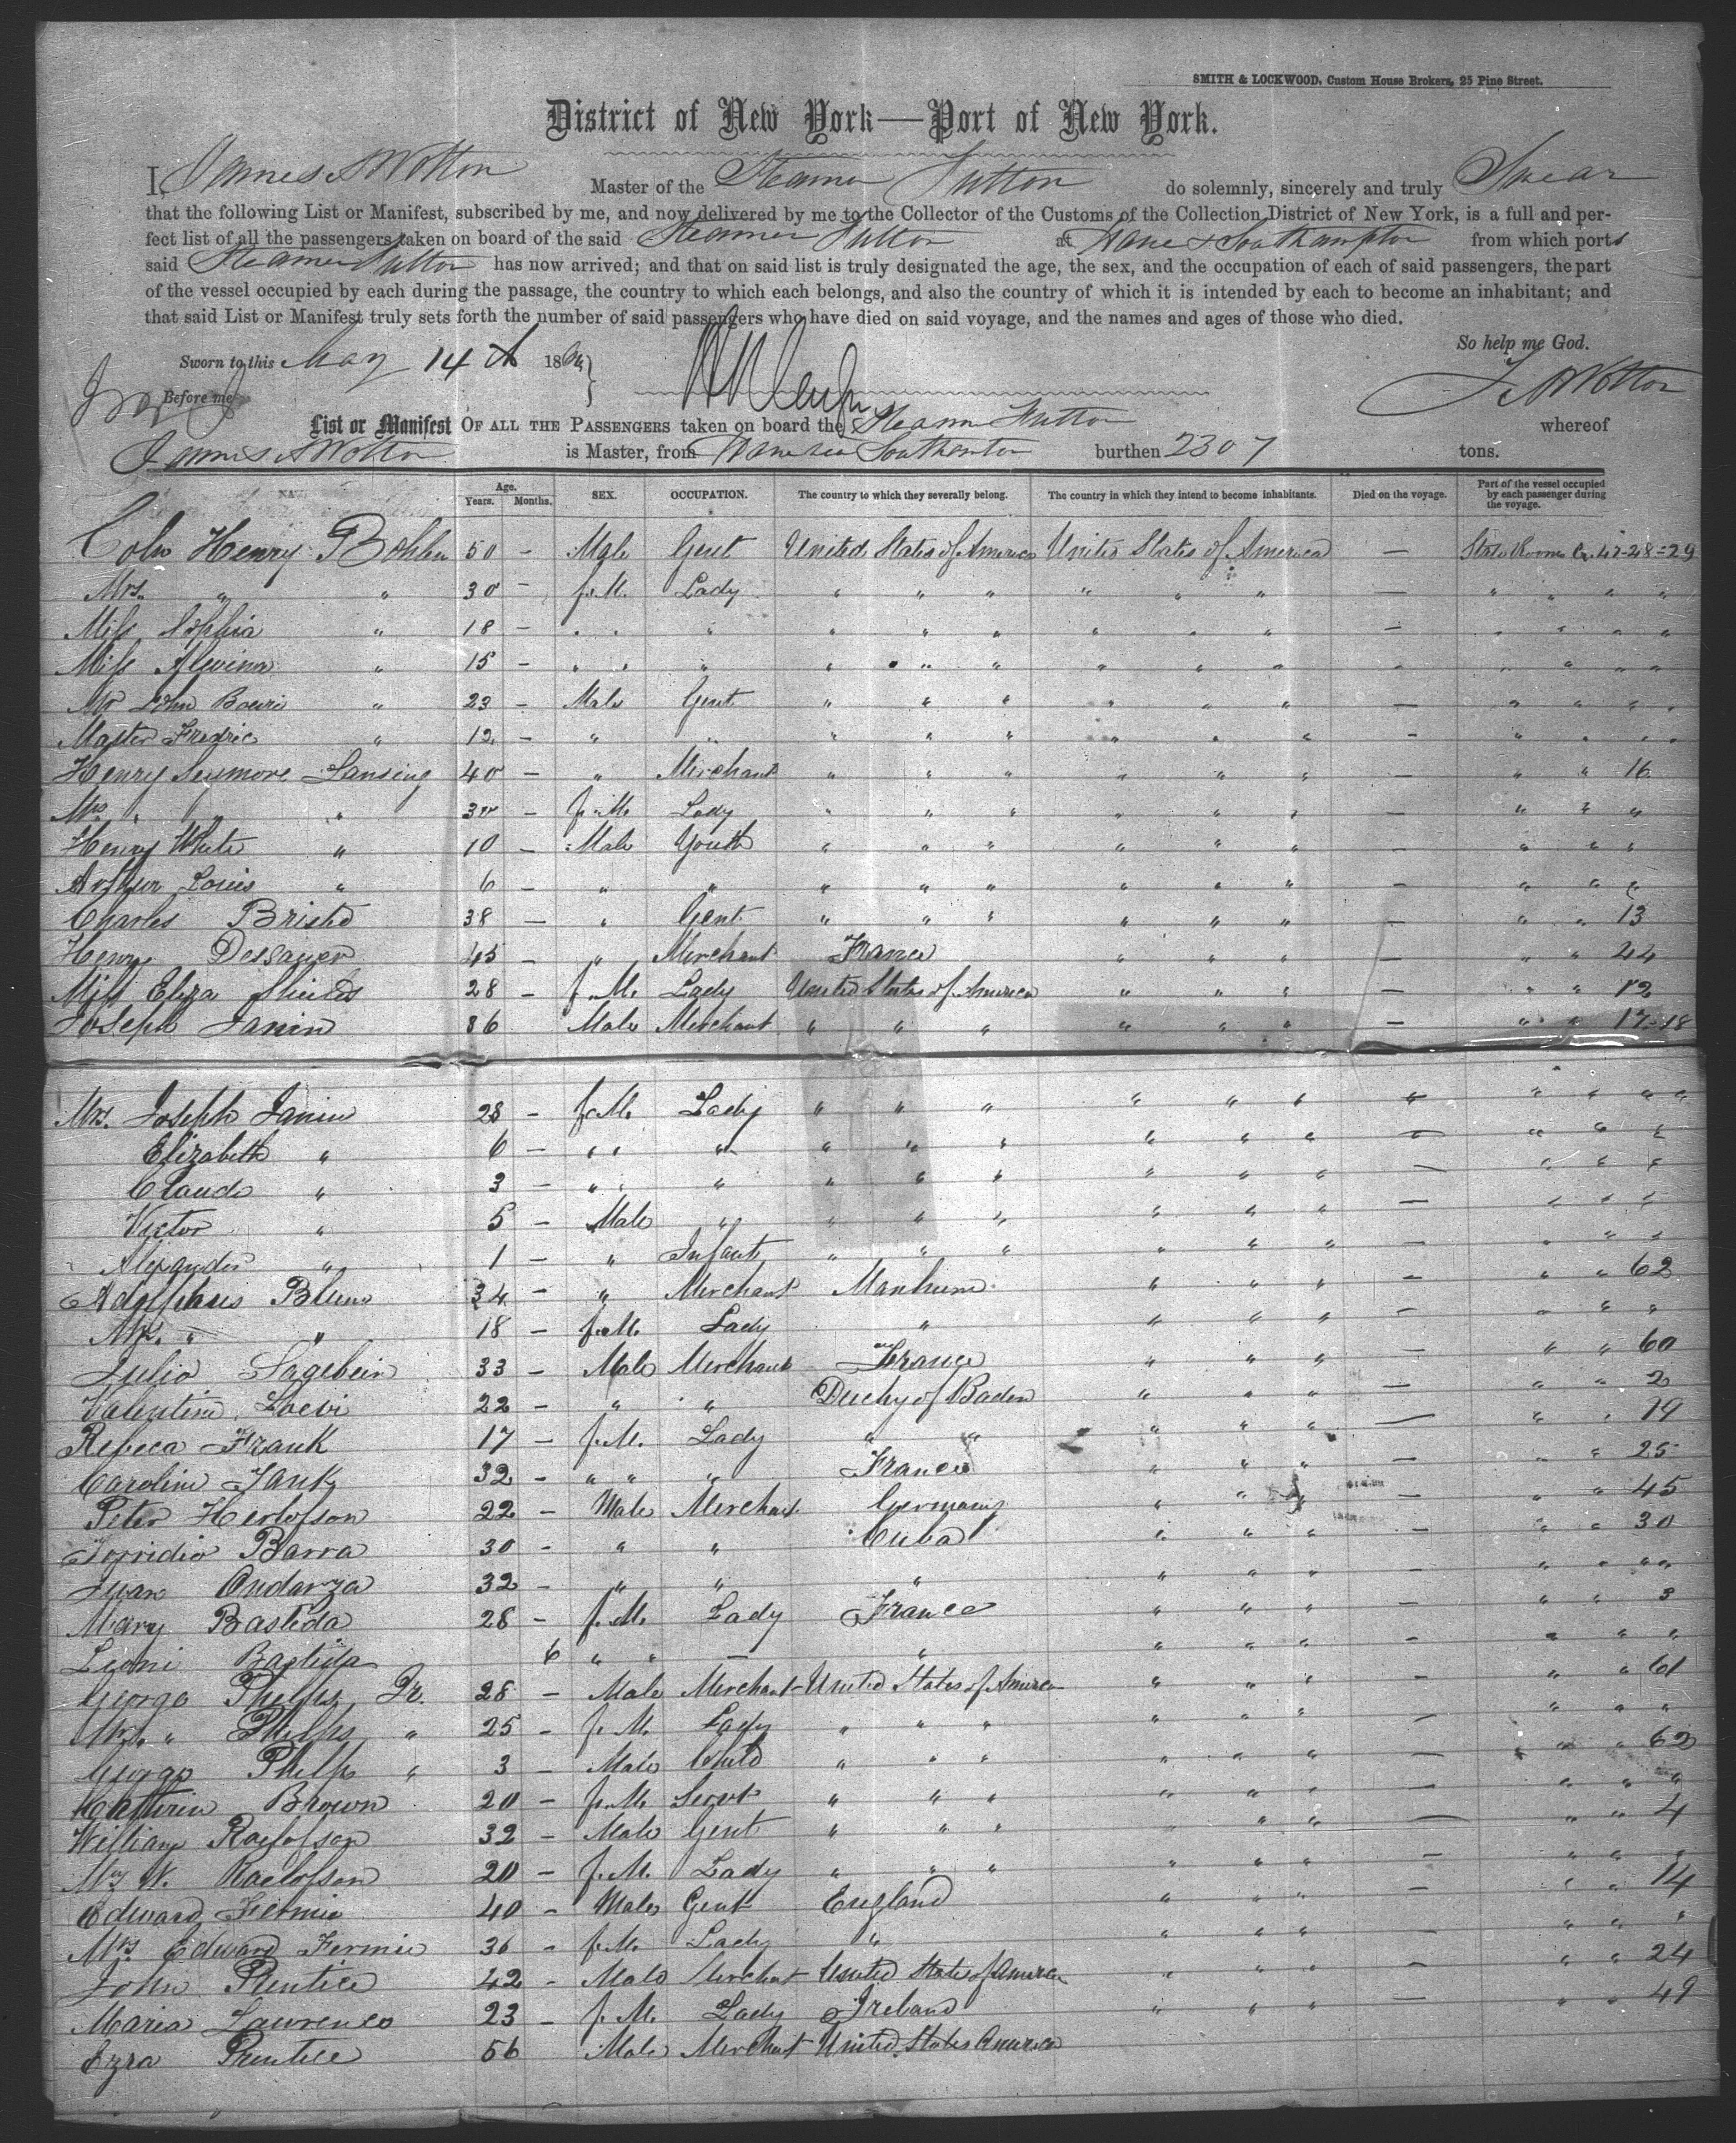 SMITH & LOCKWOOD, Custom House Brokers, 25 Pine Street.
District of New York—Port of New York.
I, James A Wotton Master of the Steamer Fulton do solemnly, sincerely and truly Swear
that the following List or Manifest, subscribed by me, and now delivered by me to the Collector of the Customs of the Collection District of New York, is a full and per-
fect list of all the passengers taken on board of the said Steamer Fulton at Havre & Southampton from which ports
said Steamer Fulton has now arrived; and that on said list is truly designated the age, the sex, and the occupation of each of said passengers, the part
of the vessel occupied by each during the passage, the country to which each belongs, and also the country of which it is intended by each to become an inhabitant; and
that said List or Manifest truly sets forth the number of said passengers who have died on said voyage, and the names and ages of those who died.
So help me God.
Sworn to this May 14th 186
Before me J A Wotton
List or Manifest OF ALL THE PASSENGERS taken on board the Steamer Fulton whereof
James A Wotton is Master, from Havre Southampton burthen 2307 tons.
Age. Part of the vessel occupied
Years. Months. SEX. OCCUPATION. The country to which they severally belong. The country in which they intend to become inhabitants. Died on the voyage. by each passenger during
the voyage.
Coln Henry Bohlen 50 - Male Gent United States of America United States of America — State Room 47-48=29
Mrs. " " 30 - f.M. Lady " " " " " " — " " " "
Miss Sophia " 18 - " " " " " " " " " — " " " "
Miss Alevina " 15 - " " " " " " " " " - " " " "
Mr John Boeri " 23 - Male Gent " " " " " " — " " " "
Master Fredric " 12 - " " " " " " " " - " " " "
Henry Seymore Lansing 40 - " Merchant " " " " " " — " " 16
Mrs. " " " 30 - f.M. Lady " " " " " " — " " "
Henry White " 10 - Male Youth " " " " " " — " " "
Arthur Louis " 6 - " " " " " " " " — " " "
Charles Bristed 38 - " Gent " " " " " " — " " 13
Henry Dessauer 45 - " Merchant France " " " — " " 44
Miss Eliza Shields 28 - f.M. Lady United States of America " " " — " " 12
Joseph Janin 36 Male Merchant " " " " " " — " " 17-18
Mrs. Joseph Janin 28 - f.M. Lady " " " " " " — " " " "
Elizabeth " 6 - " " " " " " " " " — " " "
Claude " 3 - " " " " " " " " " — " " "
Victor " 5 - Male " " " " " " " — " " "
Alexander " 1 - " Infant " " " " " " — " " "
Adolphus Blum 34 - " Merchant Manheim " " " — " " 62
Mrs. " " 18 - f.M. Lady " " " " — " " "
Julio Sagebein 33 - Male Merchant France " " " — " " 60
Valentine Loevi 22 - " " Duchy of Baden " " " — " " 2
Rebeca Frank 17 - f.M. Lady " " " " " — " " 19
Caroline Jank 32 - " " " France " " " — " " 25
Peter Herlofson 22 - Male Merchant Germany " " " — " " 45
Torridio Barra 30 - " " Cuba " " " — " " 30
Juan Oudarza 32 - " " " " " " — " " " "
Mary Bastida 28 - f.M. Lady France " " " — " " 3
Leoni Bastida 6 " " — " " " " — " " "
George Phelps Jr. 28 - Male Merchant United States of America " " " — " " 61
Mrs. " Phelps " 25 - f.M. Lady " " " " " " — " " "
George Phelps " 3 - Male Child " " " " " " — " " 62
Cathrin Brown 20 - f.M. Servt " " " " " " — " " "
William Roelofson 32 - Male Gent " " " " " " — " " 4
Mrs W. Roelofson 20 - f.M. Lady " " " " " " — " " "
Edward Fermie 40 - Male Gent England " " " — " " 14
Mrs Edward Fermie 36 - f.M. Lady " " " " — " " "
John Prentice 42 - Male Merchant United States of America " " " — " " 24
Maria Lawrence 23 - f.M. Lady Ireland " " " — " " 49
Ezra Prentice 56 Male Merchant United States America